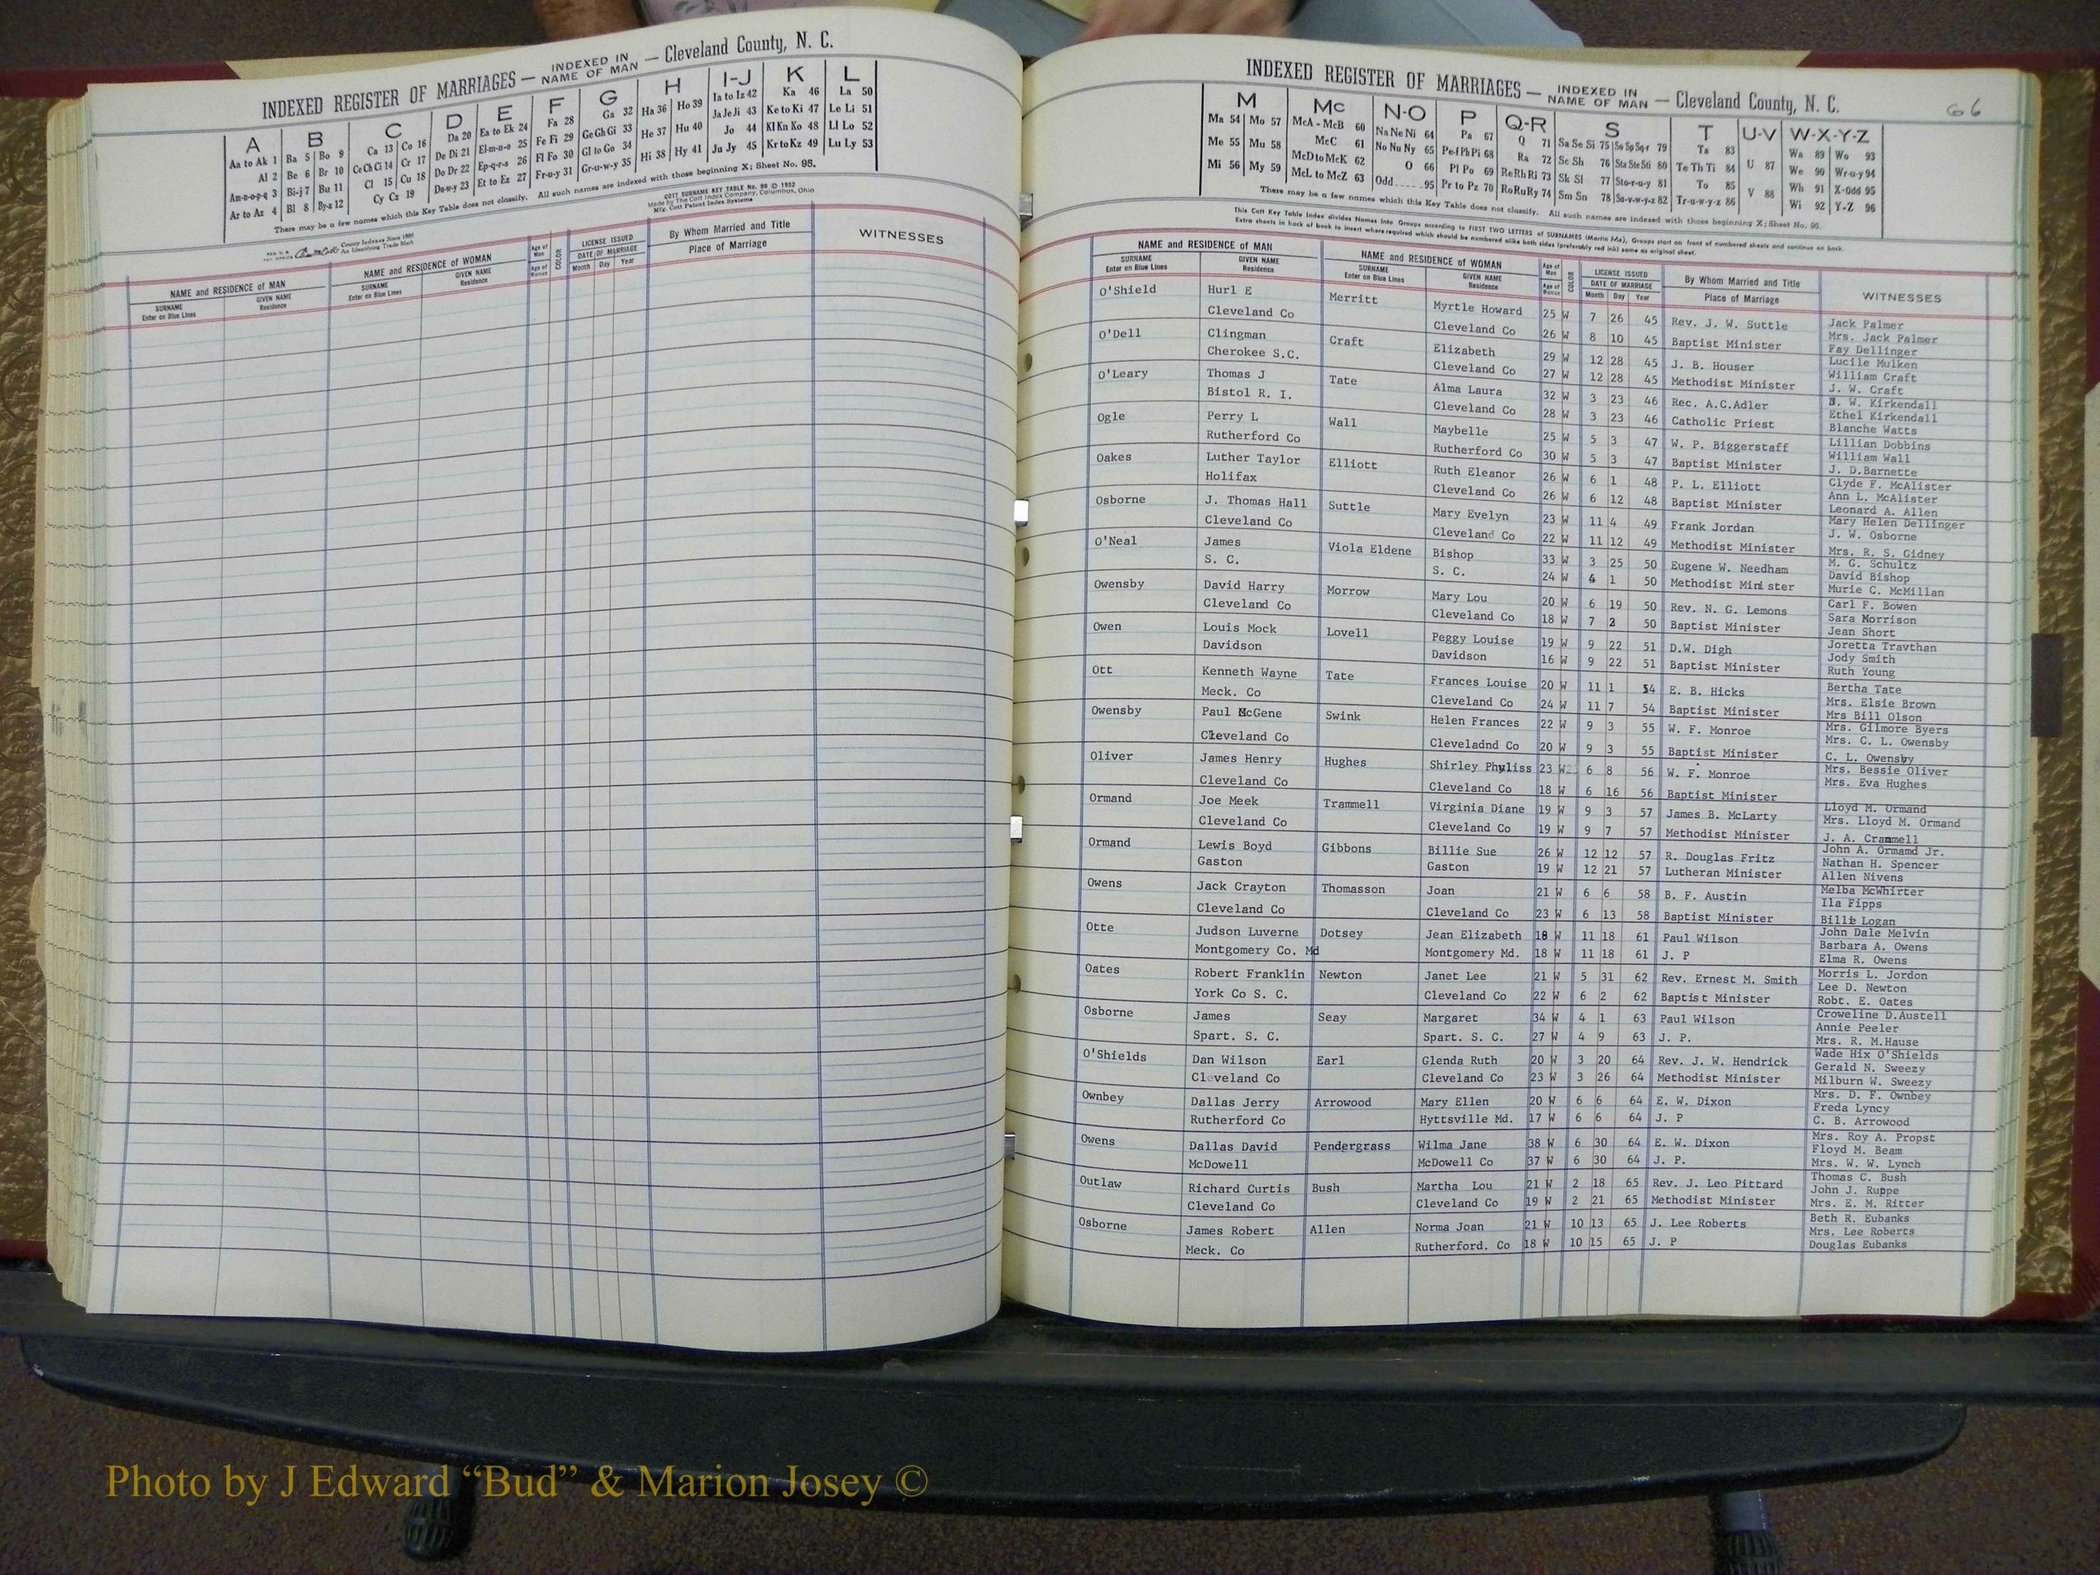 INDEXED REGISTER OF MARRIAGES — INDEXED IN NAME OF MAN — Cleveland County, N. C.
A B C D E F G H I-J K L
Aa to Ak 1 Ba 5 Bo 9 Ca 13 Co 16 Da 20 Ea to Ek 24 Fa 28 Ga 32 Ha 36 Ho 39 Ia to Iz 42 Ka 46 La 50
Al 2 Be 6 Br 10 Ce Ch Ci 14 Cr 17 De Di 21 El-m-n-o 25 Fe Fi 29 Ge Gh Gi 33 He 37 Hu 40 Ja Je Ji 43 Ke to Ki 47 Le Li 51
Am-n-o-p-q 3 Bi-j 7 Bu 11 Cl 15 Cu 18 Do Dr 22 Ep-q-r-s 26 Fl Fo 30 Gl to Go 34 Hi 38 Hy 41 Jo 44 Kl Kn Ko 48 Ll Lo 52
Ar to Az 4 Bl 8 By-z 12 Cy Cz 19 Du-w-y 23 Et to Ez 27 Fr-u-y 31 Gr-u-w-y 35 Ju Jy 45 Kr to Kz 49 Lu Ly 53
There may be a few names which this Key Table does not classify. All such names are indexed with those beginning X; Sheet No. 95.
COTT SURNAME KEY TABLE No. 96 © 1952
Made by The Cott Index Company, Columbus, Ohio
Mfg. Cott Patent Index Systems
County Indexes Since 1888
An Identifying Trade Mark
NAME and RESIDENCE OF MAN NAME and RESIDENCE OF WOMAN Age of Man COLOR LICENSE ISSUED By Whom Married and Title WITNESSES
SURNAME GIVEN NAME SURNAME GIVEN NAME Age of Woman DATE OF MARRIAGE Place of Marriage
Enter on Blue Lines Residence Enter on Blue Lines Residence Month Day Year
INDEXED REGISTER OF MARRIAGES — INDEXED IN NAME OF MAN — Cleveland County, N. C.
66
M Mc N-O P Q-R S T U-V W-X-Y-Z
Ma 54 Mo 57 McA - McB 60 Na Ne Ni 64 Pa 67 Q 71 Sa Se Si 75 So Sp Sq-r 79 Ta 83 U 87 Wa 89 Wo 93
Me 55 Mu 58 McC 61 No Nu Ny 65 Pe-f Ph Pi 68 Ra 72 Sc Sh 76 Sta Ste Sti 80 Te Th Ti 84 V 88 We 90 Wr-u-y 94
Mi 56 My 59 McD to McK 62 O 66 Pl Po 69 Re Rh Ri 73 Sk Sl 77 Sto-r-u-y 81 To 85 Wh 91 X-Odd 95
McL to McZ 63 Odd 95 Pr to Pz 70 Ro Ru Ry 74 Sm Sn 78 Su-v-w-y-z 82 Tr-u-w-y-z 86 Wi 92 Y-Z 96
There may be a few names which this Key Table does not classify. All such names are indexed with those beginning X; Sheet No. 95.
This Cott Key Table Index divides Names into Groups according to FIRST TWO LETTERS of SURNAMES (Martin Ma), Groups start on front of numbered sheets and continue on back.
Extra sheets in back of book to insert where required which should be numbered alike both sides (preferably red ink) same as original sheet.
NAME and RESIDENCE OF MAN NAME and RESIDENCE OF WOMAN Age of Man COLOR LICENSE ISSUED By Whom Married and Title WITNESSES
SURNAME GIVEN NAME SURNAME GIVEN NAME Age of Woman DATE OF MARRIAGE Place of Marriage
Enter on Blue Lines Residence Enter on Blue Lines Residence Month Day Year
O'Shield Hurl E Merritt Myrtle Howard 25 W 7 26 45 Rev. J. W. Suttle Jack Palmer
Mrs. Jack Palmer
Cleveland Co Cleveland Co 26 W 8 10 45 Baptist Minister Fay Dellinger
O'Dell Clingman Craft Elizabeth 29 W 12 28 45 J. B. Houser Lucile Mulken
William Craft
Cherokee S.C. Cleveland Co 27 W 12 28 45 Methodist Minister J. W. Craft
O'Leary Thomas J Tate Alma Laura 32 W 3 23 46 Rec. A.C.Adler W. Kirkendall
Ethel Kirkendall
Bistol R. I. Cleveland Co 28 W 3 23 46 Catholic Priest Blanche Watts
Ogle Perry L Wall Maybelle 25 W 5 3 47 W. P. Biggerstaff Lillian Dobbins
William Wall
Rutherford Co Rutherford Co 30 W 5 3 47 Baptist Minister J. D.Barnette
Oakes Luther Taylor Elliott Ruth Eleanor 26 W 6 1 48 P. L. Elliott Clyde F. McAlister
Ann L. McAlister
Holifax Cleveland Co 26 W 6 12 48 Baptist Minister Leonard A. Allen
Osborne J. Thomas Hall Suttle Mary Evelyn 23 W 11 4 49 Frank Jordan Mary Helen Dellinger
J. W. Osborne
Cleveland Co Cleveland Co 22 W 11 12 49 Methodist Minister Mrs. R. S. Gidney
O'Neal James Viola Eldene Bishop 33 W 3 25 50 Eugene W. Needham M. G. Schultz
David Bishop
S. C. S. C. 24 W 4 1 50 Methodist Minister Murie C. McMillan
Owensby David Harry Morrow Mary Lou 20 W 6 19 50 Rev. N. G. Lemons Carl F. Bowen
Sara Morrison
Cleveland Co Cleveland Co 18 W 7 2 50 Baptist Minister Jean Short
Owen Louis Mock Lovell Peggy Louise 19 W 9 22 51 D.W. Digh Joretta Travthan
Jody Smith
Davidson Davidson 16 W 9 22 51 Baptist Minister Ruth Young
Ott Kenneth Wayne Tate Frances Louise 20 W 11 1 54 E. B. Hicks Bertha Tate
Mrs. Elsie Brown
Meck. Co Cleveland Co 24 W 11 7 54 Baptist Minister Mrs Bill Olson
Owensby Paul McGene Swink Helen Frances 22 W 9 3 55 W. F. Monroe Mrs. Gilmore Byers
Mrs. C. L. Owensby
Cleveland Co Cleveladnd Co 20 W 9 3 55 Baptist Minister C. L. Owensby
Oliver James Henry Hughes Shirley Phyliss 23 W 6 8 56 W. F. Monroe Mrs. Bessie Oliver
Mrs. Eva Hughes
Cleveland Co Cleveland Co 18 W 6 16 56 Baptist Minister
Ormand Joe Meek Trammell Virginia Diane 19 W 9 3 57 James B. McLarty Lloyd M. Ormand
Mrs. Lloyd M. Ormand
Cleveland Co Cleveland Co 19 W 9 7 57 Methodist Minister J. A. Crammell
Ormand Lewis Boyd Gibbons Billie Sue 26 W 12 12 57 R. Douglas Fritz John A. Ormamd Jr.
Nathan H. Spencer
Gaston Gaston 19 W 12 21 57 Lutheran Minister Allen Nivens
Owens Jack Crayton Thomasson Joan 21 W 6 6 58 B. F. Austin Melba McWhirter
Ila Fipps
Cleveland Co Cleveland Co 23 W 6 13 58 Baptist Minister Billie Logan
Otte Judson Luverne Dotsey Jean Elizabeth 18 W 11 18 61 Paul Wilson John Dale Melvin
Barbara A. Owens
Montgomery Co. Md Montgomery Md. 18 W 11 18 61 J. P Elma R. Owens
Oates Robert Franklin Newton Janet Lee 21 W 5 31 62 Rev. Ernest M. Smith Morris L. Jordon
Lee D. Newton
York Co S. C. Cleveland Co 22 W 6 2 62 Baptist Minister Robt. E. Oates
Osborne James Seay Margaret 34 W 4 1 63 Paul Wilson Croweline D.Austell
Annie Peeler
Spart. S. C. Spart. S. C. 27 W 4 9 63 J. P. Mrs. R. M.Hause
O'Shields Dan Wilson Earl Glenda Ruth 20 W 3 20 64 Rev. J. W. Hendrick Wade Hix O'Shields
Gerald N. Sweezy
Cleveland Co Cleveland Co 23 W 3 26 64 Methodist Minister Milburn W. Sweezy
Ownbey Dallas Jerry Arrowood Mary Ellen 20 W 6 6 64 E. W. Dixon Mrs. D. F. Ownbey
Freda Lyncy
Rutherford Co Hyttsville Md. 17 W 6 6 64 J. P C. B. Arrowood
Owens Dallas David Pendergrass Wilma Jane 38 W 6 30 64 E. W. Dixon Mrs. Roy A. Propst
Floyd M. Beam
McDowell McDowell Co 37 W 6 30 64 J. P. Mrs. W. W. Lynch
Outlaw Richard Curtis Bush Martha Lou 21 W 2 18 65 Rev. J. Leo Pittard Thomas C. Bush
John J. Ruppe
Cleveland Co Cleveland Co 19 W 2 21 65 Methodist Minister Mrs. E. M. Ritter
Osborne James Robert Allen Norma Joan 21 W 10 13 65 J. Lee Roberts Beth R. Eubanks
Mrs. Lee Roberts
Meck. Co Rutherford. Co 18 W 10 15 65 J. P Douglas Eubanks
Photo by J Edward “Bud” & Marion Josey ©